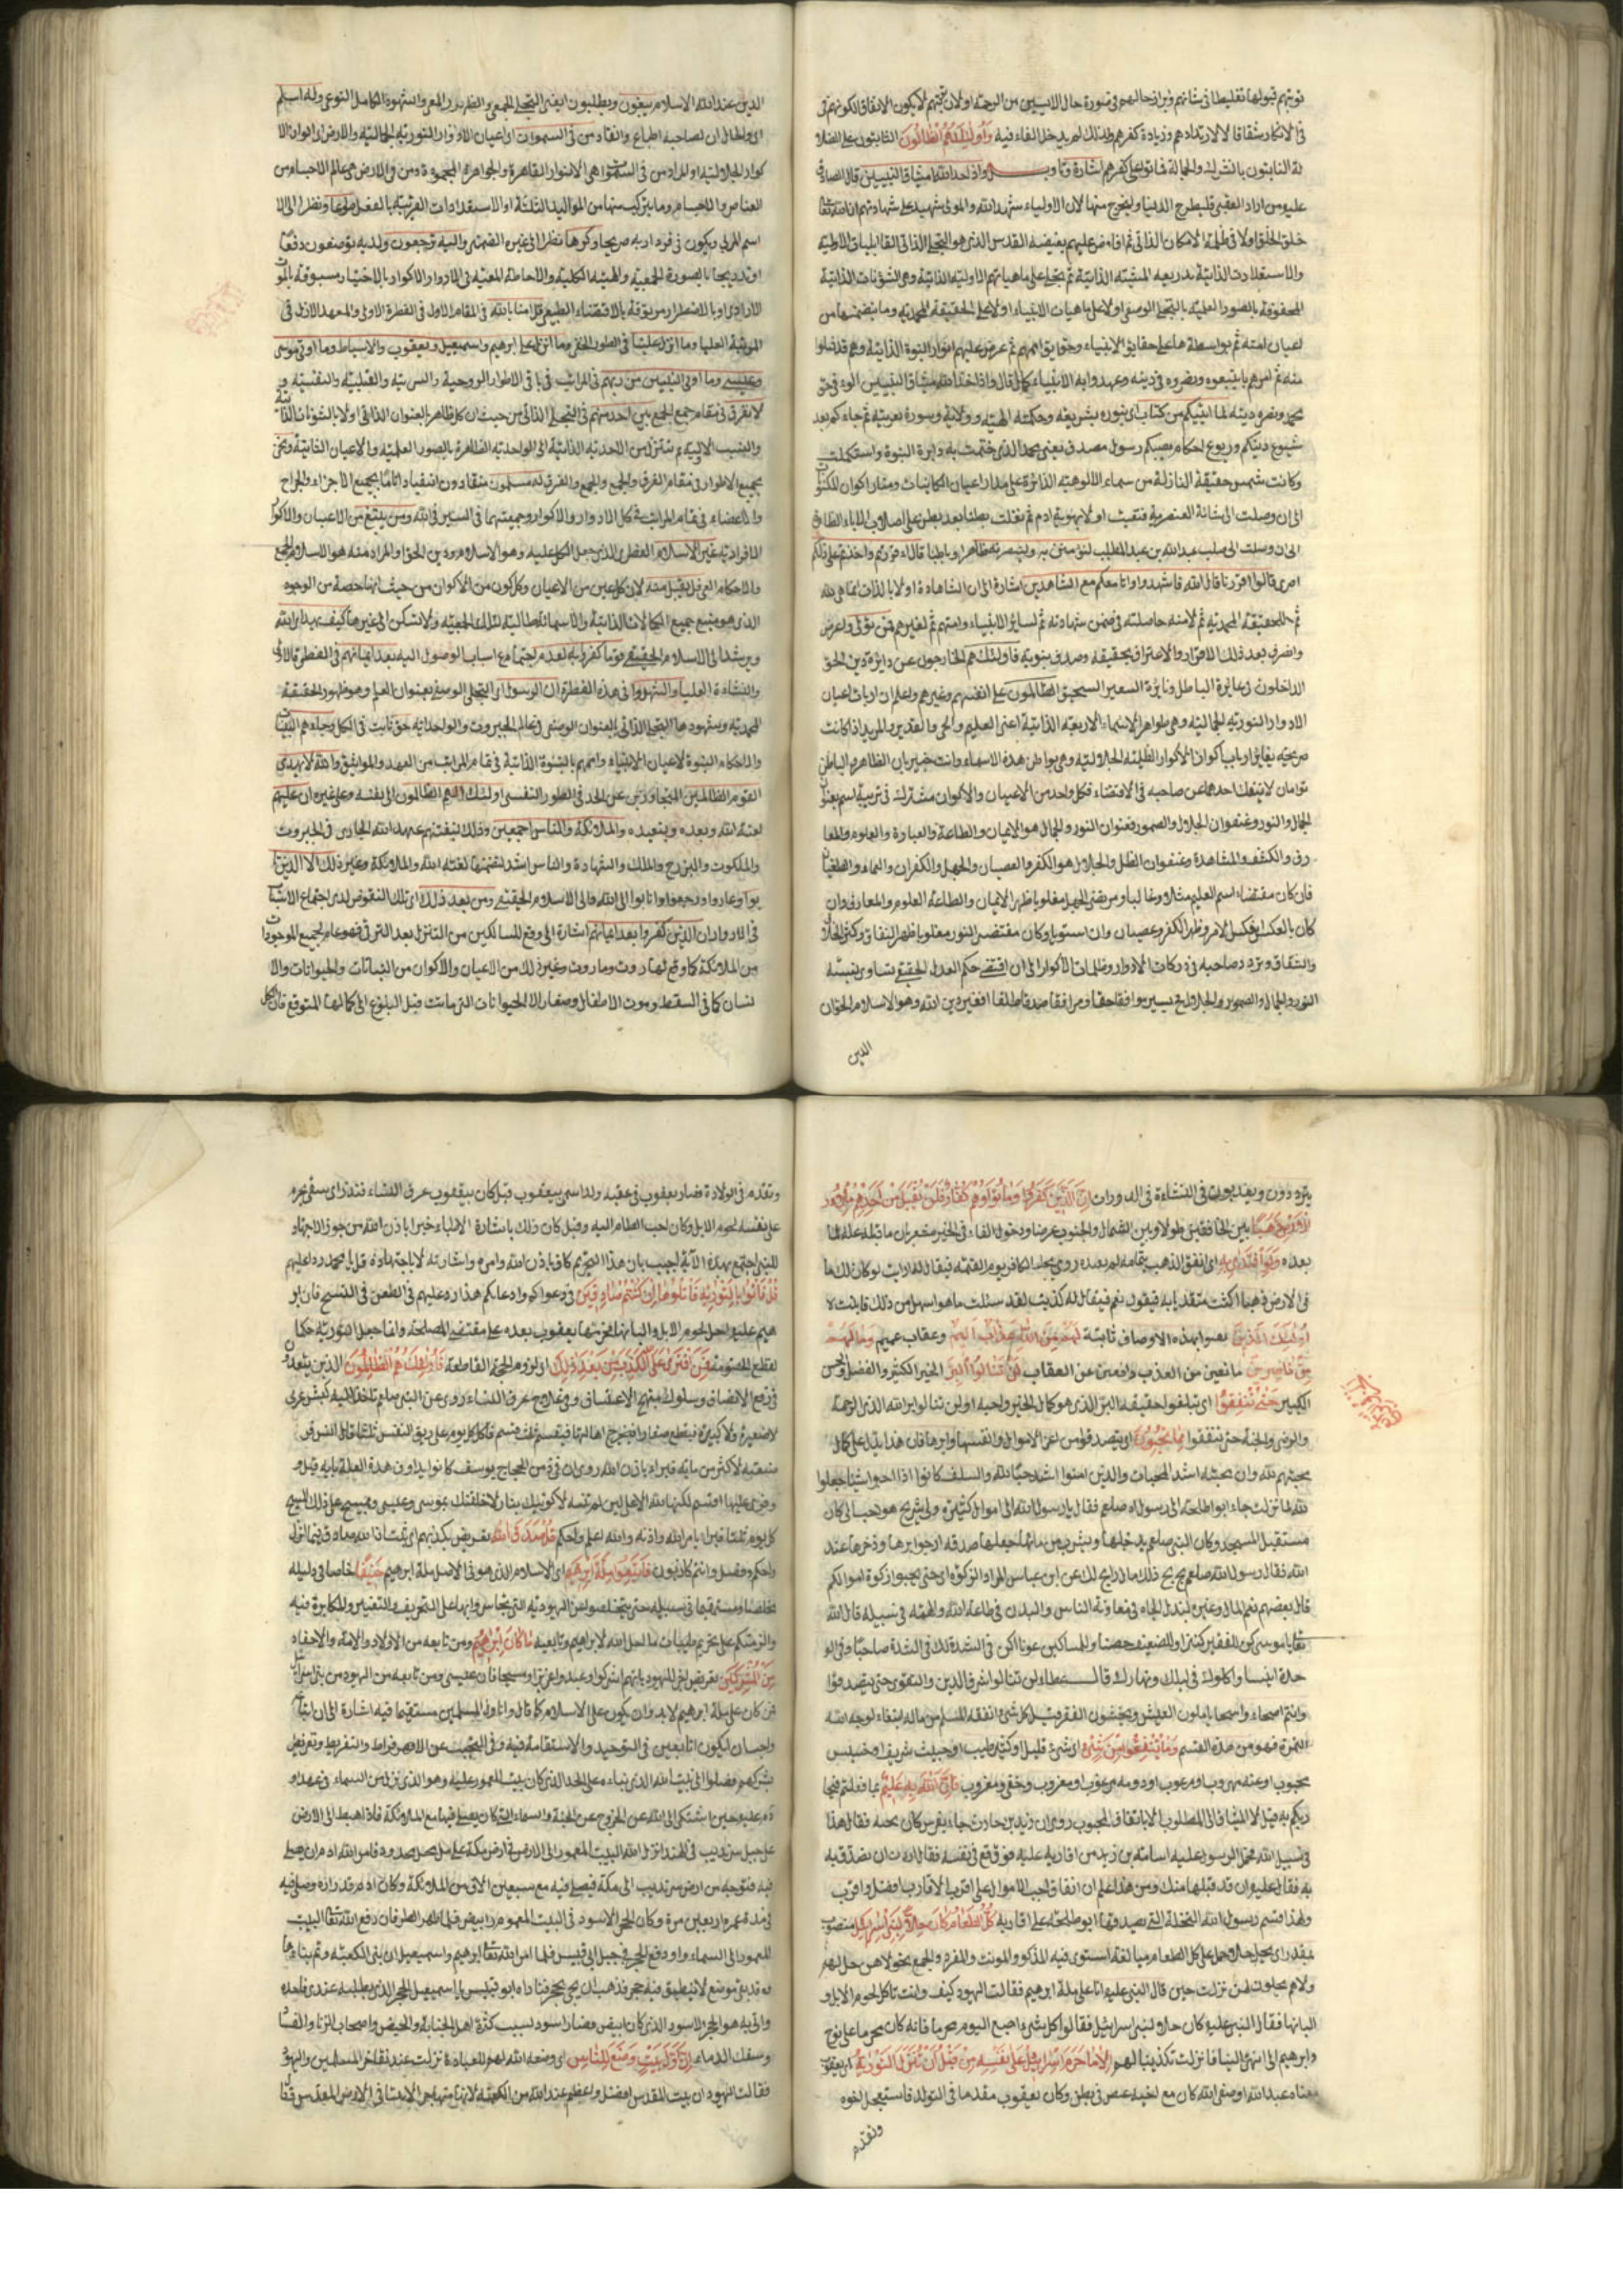 توبتهم قبولها تغليظا في شانهم وبراز حالهم في صورة حال الايسين من الرحمة او لان توبتهم لا يكون الا نفاقا لكونهم
في الانكار شقاقا لا لارتدادهم وزيادة كفرهم ولذلك لم يدخل الفاء فيه وَأُولَئِكَ هُمُ الضَّالُّونَ الثابتون على الضلا
واذ اخذ الله ميثاق النبيين قال الصادق
عليه من اراد العقبى فليطرح الدنيا وليخرج منها لان الاولياء شهد الله والمولى شهيد على شهادتهم ان الله تعالى
خلق الخلق اولا في ظلمة الامكان الذاتي ثم افاض عليهم بفيضه القدس الذي هو التجلي الذاتي القابليات الاولية
والاستعدادت الذاتية بذريعه المشية الذاتية ثم تجلى على ماهياتهم الاولية الذاتية وهي الشؤنات الذاتية
المحفوفة بالصور العلمية بالتجلي الوصفي اولا على ماهيات الانبياء اولا على الحقيقة المحمدية وما يتضمنها من
اعيان امته ثم بواسطة ها على حقايق الانبياء وحقايق اممهم ثم عرض عليهم انوار النبوة الذاتية وهم قد ضلوا
منه ثم امرهم بان يتبعوه ونصروه في دينه وعهدوا به الانبياء كما قال واذ اخذ الله ميثاق النبيين
محمد ونصره دينه لما اتيتكم من كتاب اي بنوره بشريعة وحكمة الهية وولاية وسورة نعريته ثم جاءكم بعد
شيوع دينكم وربوع احكام نصيبكم رسول مصدق يعني محمد الذي ختمت به دايرة النبوة واستكملت
وكانت شمس حقيقة النازلة من سماء الالوهية الدائرة على مدار اعيان الكاينات ومدار اكوان
الى ان وصلت الى شانة العنصرية فتقيت اولا بهوية ادم ثم نقلت بطنا بعد بطن على اصلاب الاباء الطا
الى ان وصلت الى صلب عبد الله بن عبد المطلب لتؤمنن به ولتنصرنه ظاهرا وباطنا قال اءقررتم واخذتم على ذلكم
اصرى قالوا اقررنا قال الله فاشهدوا وانا معكم مع الشاهدين اشارة الى ان الشاهادة اولا بالذات انما هي لله
ثم للحقيقة المحمدية ثم لامته حاصلة في ضمن شهادته ثم لساير الانبياء وامتهم ثم لغيرهم فمن تولى واعرض
وانصرف بعد ذلك الاقرار والاعتراف بحقيقه وصدق بنبوته فاولئك هم الخارجون عن دايرة دين الحق
الداخلون في دايرة الباطل ونايرة السعير السجيق الظالمون على انفسهم وغيرهم واعلم ان ارباب اعيان
الادوار النورية الجمالية وهي ظواهر الاسماء الاربعة الذاتية اعنى العليم والحي والقدير والمريد اذا كانت
صريحة يقابق ارباب اكوان الاكوار الظلية الجلالية وهي بواطن هذه الاسماء وانت خبير بان الظاهر والباطن
توامان لا ينفك احدهما عن صاحبه في الاقتضاء فكل واحد من الاعيان والاكوان مشترك في تربية اسم
الجمال والنور وعنفوان الجلال والصور فعنوان النور والجمال هو الايمان والطاعة والعبادة والعلوم والمعا
رف والكشف والمشاهدة وعنفوان الظل والجلال هو الكفر والعصيان والجهل والكفران والعماء والطغيان
فان كان مقتضاء اسم العليم مثلا وغالبا ومرتضى الجهل مغلوبا ظهر الايمان والطاعة العلوم والمعارف وان
كان بالعكس انعكس الامر وظهر الكفر وعصيان وان استويا وكان مقتضى النور مغلوبا ظهر النفاق وكثر الخلا
والشقاق وتردد صاحبه في دركات الادوار وظلمات الاكوار الى ان اقتضى حكم العدل الحقيقي تساوى نسبته
النور والجمال والصور والجلال فح يسير موافقا حقا ومرافقا صدقا مطلقا افغير دين الله وهو الاسلام الحق ان
الدين
الدين عند الله الاسلام يبغون ويطلبون ايغنى التجلي الجمعي والظهور المعى والشهود الكامل النوعى وله اسلم
اى والحال ان لصاحبه اطاع وانقاد من في السموات او اعيان الادوار النورية الجمالية والارض او اكوان الا
كوار الجلالية او المراد من في السموات هي الانوار القاهرة والجواهر المجردة ومن في الارض هي عالم الاجسام من
العناصر والاجسام وما يتركب منها من المواليد الثلثة او الاستعدادات القريبة بالفعل طوعا ونظرا الى الا
اسم المربى ويكون في فرد اربه صريحا وكرها نظرا الى غيره الضمني واليه ترجعون ولديه توصفون دفعا
او تدريجا بالصورة الجمعية والهيئة الكلية والاحاطة المعية في الادوار والاكوار بالاختيار مسبوقة بالمو
الارادى او بالاضطرار مربوقة بالاقتضاء الطبيعى قل امنا بالله في المقام الاول في الفطرة الاولى والمعهد الازل في
المرتبة العليا وما انزل علينا في الطور الخفى وما انزل على ابرهيم واسمعيل ويعقوب والاسباط وما اوتي موسى
وعيسى وما اوتى النبيون من ربهم في المراتب في باقى الاطوار الروحية والسرية والقلبية والنفسية و
لا نفرق في مقام جمع الجمع بين احد منهم في التجلى الذاتى من حيث ان كل ظاهر بالعنوان الذاتى اولا بالشؤنات الذاتية
والنسب الالهية وبتنزل من الاحدية الذاتية الى الواحدية الظاهرة بالصور العلمية والاعيان الثابتة ونحن
بجميع الاطوار في مقام الفرق والجمع والجمع والفرق له مسلمون منقادون انقيادا تاما بجميع الاجزاء والجوارح
والاعضاء في تمام المراتب في كل الادوار والاكوار وجمعيتهما في السير في الله ومن يبتغ من الاعيان والاكوان
الافرادية غير الاسلام الفطرى الذى جعل الكل عليه وهو الاسلام ودين الحق والمراد منه هو الاسلام الجمع
والاحكام العرفى فلن يقبل منه لان كل عين من الاعيان وكل كون من الاكوان من حيث انها حصة من الوجود
الذى هو منبع جميع الكمالات الذاتية والاسمائية طالبة لتلك الجمعية ولا تسكن الى غيرها كيف يهدى الله
ويرشد الى الاسلام الحقيقى قوما كفروا به لعدم اجتماع اسباب الوصول اليه بعد ايمانهم في الفطرة الاولى
والنشاءة العليا والشهدوا في هذه الفطرة ان الرسول اى التجلى الوصفى بعنوان العلم وهو ظهور الحقيقة
المحمدية وشهودها التجلى الذاتى بالعنوان الوصفى في عالم الجبروت والواحدية حق ثابت في الكل وجاءهم البينات
والاحكام النبوة لاعيان الانبياء واممهم بالنبوة الذاتية في تمام المراتب من العهد والمواثيق والله لا يهدى
القوم الظالمين المتجاوزين عن الحد في الطور النفسى اولئك الهم الظالمون الى نفسه وعلى غيره ان عليهم
لعنة الله وبعده وبتعيده والملائكة والناس اجمعين وذلك لنقضهم عهد الله الجارى في الجبروت
والملكوت والبرزخ والملك والشهادة والناس اشد لضمنها لعنة الله والملائكة وغير ذلك الا الذين تا
بوا وعادوا ورجعوا وانابوا الى الله والى الاسلام الحقيقى ومن بعد ذلك اى تلك النقوض لدى اجتماع الاسباب
في الادوار ان الذين كفروا بعد ايمانهم اشارة الى وقع للسالكين من التنازل بعد الترقى فهو عام لجميع الموجودات
من الملائكة كما وقع لهاروت وماروت وغير ذلك من الاعيان والاكوان من النباتات والحيوانات والا
نسان كما في السقط وموت الاطفال وصغار الحيوانات التى ماتت قبل البلوغ الى كمالها المتوقع فان الكل
يترددون ويعيدون في النشاءة في الدورات اِنَّ الَّذِينَ كَفَرُوا وَمَاتُوا وَهُمْ كُفَّارٌ فَلَنْ يُقْبَلَ مِنْ أَحَدِهِمْ مِلْءُ
الْأَرْضِ ذَهَبًا بين الخافقين طولا وبين الشمال والجنوب عرضا ودخول الفاء في الخبر مشعر بان ما قبله علة لما
بعده وَلَوِ افْتَدَى بِهِ اى انفق الذهب بتمامه لم بعده روى يجاء الكافر يوم القيمة فيقال له ارايت لو كان لك ما
في الارض ذهبا اكنت مفتديا به فيقول نعم فيقال له كذبت لقد سئلت ما هو اسهل من ذلك فابيت لا
أُولَئِكَ الَّذِينَ نعتوا بهذه الاوصاف ثابتة لَهُمْ مِنَ اللهِ عَذَابٌ أَلِيمٌ وعقاب عميم وَمَا لَهُمْ
مِنْ نَاصِرِينَ مانعين من العذب دافعين عن العقاب لَنْ تَنَالُوا الْبِرَّ الخير الكثير والفضل والحسن
الكبير حَتَّى تُنْفِقُوا اى تبلغوا حقيقة البر الذى هو كمال الخير واحبه او لن تنالوا بر الله الذى الرحمة
والرضى والجنة حتى تنفقوا مِمَّا تُحِبُّونَ اى يتصدقوا من اعز الاموال وانفسها وابرها فان هذا يدل على كمال
محبتهم لله وان محبته اشد المحبات والذين امنوا اشد حبا لله والسلف كانوا اذا احبوا شيئا جعلوا
لله لما نزلت جاء ابو طلحة الى رسول الله صلعم فقال يا رسول الله الى اموال كثيرة ولى بيرح هو حب الى كان
مستقبل المسجد وكان النبي صلعم يدخلها ويشرب من مائها جعلها صدقة ارجو ابرها وذخرها عند
الله فقال رسول الله صلعم بخ بخ ذلك مال رابح لك عن ابن عباس المراد الزكوة اى حتى يجبوا زكوة اموالكم
قال بعضهم نعم المال وعين ببذل الجاه في معاونة الناس والبدن في طاعة الله والمهجة في سبيله قال الله
تعالى يا موسى كن للفقير كنزا وللضعيف حصنا وللمساكين عونا اكن في الشدة لك في الشدة صاحبا وفى الو
حدة انيسا واكلوك في ليلك ونهارك قال عطاء لن تنالوا شرف الدين والتقوى حتى يتصدقوا
وانتم اصحاء واشحاء ياملون العيش ويخشون الفقر قيل كل شئ انفقه المسلم من ماله ابتغاء لوجه الله
التمرة فهو من هذه القسم وَمَا تُنْفِقُوا مِنْ شَيْءٍ اى شئ قليل او كثير طيب او خبيث شريف او خسيس
محبوب او عنه مهروب او مرعوب فَإِنَّ اللهَ بِهِ عَلِيمٌ بما فعلتم فيجا
زيكم به قيل لا الميثاق الى المطلوب الا باتفاق المحبوب روى ان زيد بن حارث جاء بفرس كان يحبه فقال هذا
في سبيل الله فحمل الرسول عليه اسامة بن زيد من اقاربه عليه فوقع في نفسه فقال اردت ان تصدق به
به فقال عليه ان قد قبلها منك ومن هذا علم ان انفاق احب الاموال على اقرب الاقارب افضل واقرب
ولهذا قسم رسول الله النخلة التى تصدقها ابو طلحة على اقاربه كُلُّ الطَّعَامِ كَانَ حِلًّا لِبَنِي إِسْرَائِيلَ منصوب
مقدر اى يحل حلا وحمل على كل الطعام مبالغة استوى فيه المذكر والمونث والمفرد والجمع نحو لا هن حل لهم
ولا هم يحلون لهن نزلت حين قال النبى عليه انا على ملة ابرهيم فقالت اليهود كيف وانت تاكل لحوم الابل و
البانها فقال النبى عليه كان حلا لبنى اسرائيل فقالوا كل شئ اصبح اليوم محرما فانه كان محرما على نوح
وابرهيم الى انتهى الينا فانزلت تكذيبا لهم إِلَّا مَا حَرَّمَ إِسْرَائِيلُ عَلَى نَفْسِهِ مِنْ قَبْلِ أَنْ تُنَزَّلَ التَّوْرَاةُ اى يعقوب
معناه عبد الله او صفى الله كان مع اخيه عيص في بطن وكان يعقوب مقدما في التولد فاستعجل اخوه
وتقدم
وتقدم في الولادة فصار يعقوب في عقبه ولذا سمى بيعقوب قيل كان بيعقوب عرق النساء فنذر اى شفى يحرم
على نفسه لحوم الابل وكان احب الطعام اليه وقيل كان ذلك باشارة الاطباء خيرا باذن الله من جوز الاجتهاد
للنبى اجتمع بهذه الآية اجيب بان هذا التحريم كان باذن الله وامره واشارته لا باجتهاده قل يا محمد ردا عليهم
قُلْ فَأْتُوا بِالتَّوْرَيةِ فَاتْلُوهَا إِنْ كُنْتُمْ صَادِقِينَ في دعواكم وادعائكم هذا رد عليهم في الطعن في النسخ فان ابر
هيم عليه احل لحوم الابل والبانها فحرمتها يعقوب بعده على مقتضى المصلحة ولما جعل التورية حكما
لقطع الخصومة فَمَنِ افْتَرَى عَلَى اللهِ الْكَذِبَ مِنْ بَعْدِ ذَلِكَ اى لزوم الحجة القاطعة فَأُولَئِكَ هُمُ الظَّالِمُونَ الذين يتعدو
في رفع الانصاف وسلوك منهج الاعتساف وفى علاج عرق النساء روى عن النبى صلعم تاخذ الية كبش عربى
لا صغيرة ولا كبيرة فيقطع صغارا فيخرج اهالتها فيقسم ثلث قسم فى كل يوم على ريق النفس ثلثا قال انس فو
صفته لاكثر من ماية فبراء باذن الله روى ان في زمن الحجاج يوسف كانوا يداوى هذه العلة
كل يوم ثلثا فبرا بامر الله واذنه والله اعلم واحكم قُلْ صَدَقَ اللهُ تعريض بكذبهم اى ثبت اذا الله صادق فيما انزل
واحكم وفصل وانتم كاذبون فَاتَّبِعُوا مِلَّةَ إِبْرَاهِيمَ اى الاسلام الذى هو في الاصل ملة ابرهيم حَنِيفًا خاصا في دليله
مخلصا ومستقيما في سبيله حتى يتخلصوا من اليهودية التى
والزمتكم على تحريم طيبات ما احل الله لابراهيم وتابعيه مَا كَانَ إِبْرَاهِيمُ ومن تابعه من الاولاد والامة والاحفاد
مِنَ الْمُشْرِكِينَ تعريض اخر لليهود بانهم اشركوا وعبدوا عزيزا ومسيحا فان عيسى ومن تابعه من اليهود من بنى اسرائيل
فمن كان على ملة ابرهيم لا بد وان يكون على الاسلام كما قال وانا اول المسلمين مستقيما فيه اشارة الى ان اتباع
واجب ان يكون اتابعين في التوحيد والاستقامة فيه وفى التجنب عن الافراط والتفريط وتعريض
بشركهم فضلوا الى بيت الله الذى بناءه على الحد الذى كان بيت المعمور عليه وهو الذى نزل من السماء في عهد آد
دم عليه حين اشتكى الى الله عن الخروج عن الجنة والسماء التى كان يصلى فيها مع الملائكة فاذا اهبط الى الارض
على جبل سرنديب في الهند انزل الله البيت المعمور الى الارض في ارض مكة على حده فامر الله ادم ان يصلى
فيه فتوجه من ارض سرنديب الى مكة فيصلى فيه مع سبعين الاف من الملائكة وكان ادم قد زاره وصلى فيه
في مدة عمره اربعين مرة وكان الحجر الاسود في البيت المعمور در ابيض فلما ظهر الطوفان رفع الله تعالى البيت
المعمور الى السماء واودع الحجر في جبل ابى قبيس فلما امر الله تعالى ابرهيم واسمعيل ان بنى الكعبة وتم بناءها
وقد بقى موضع لا ينطبق فيه حجر فذهب ان يجئ بحجر فناداه ابو قبيس يا اسمعيل الحجر الذى يطلبه عندى فاخذه
واتى به هو الحجر الاسود الذى كان ابيض فصار اسود لسبب كثرة اهل الجنابة والحيض واصحاب الزناء والفسا
وسفك الدماء إِنَّ أَوَّلَ بَيْتٍ وُضِعَ لِلنَّاسِ اى وضعه الله لهم للعبادة نزلت عند تفاخر المسلمين واليهود
فقالت اليهود ان بيت المقدس افضل واعظم عند الله من الكعبة لانها مهاجر الانبياء في الارض المقدس فقا